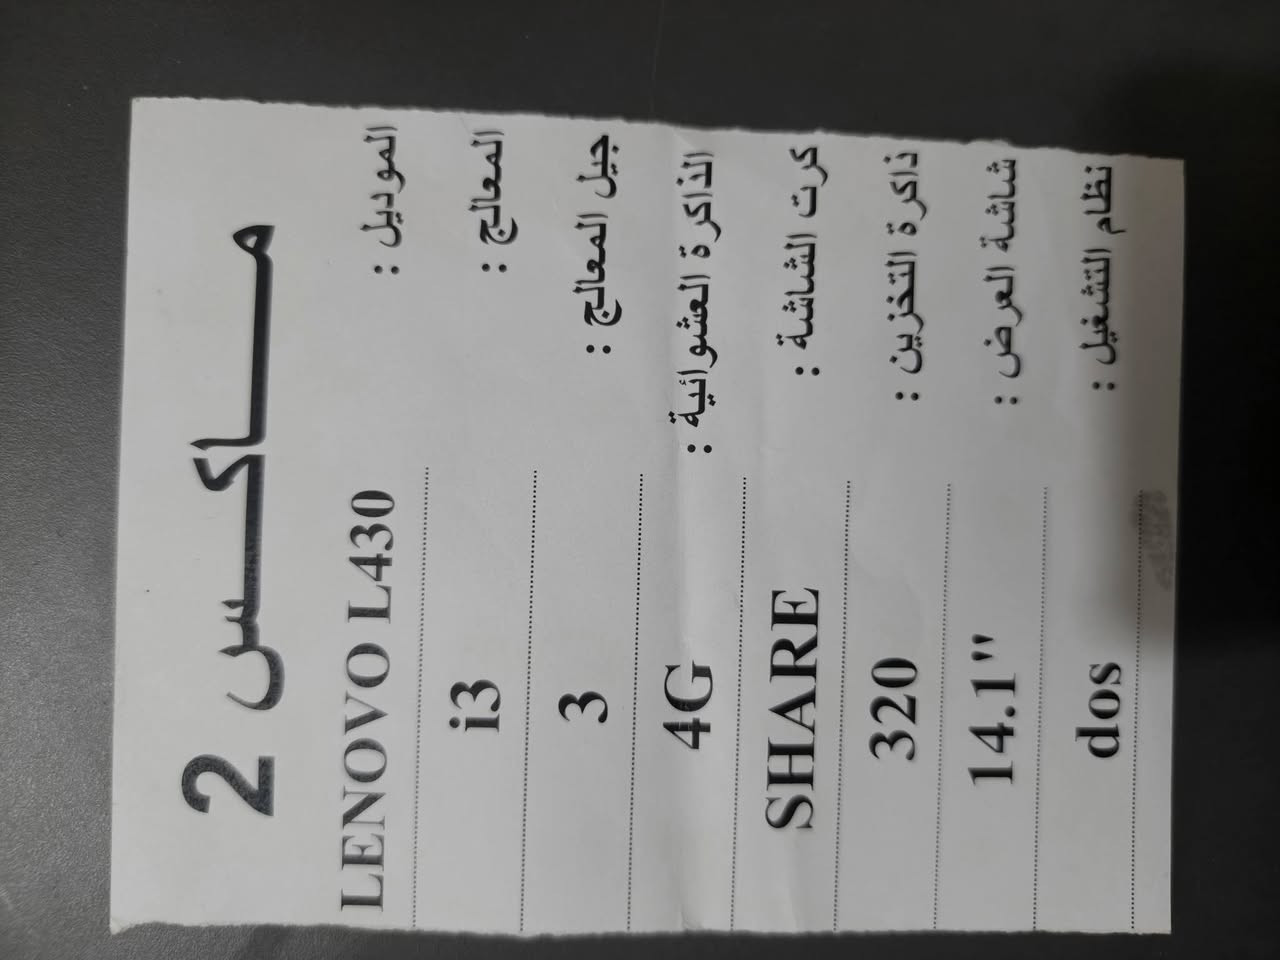 ماكس 2
الموديل : LENOVO L430
المعالج : i3
جيل المعالج : 3
الذاكرة العشوائية : 4G
كرت الشاشة : SHARE
ذاكرة التخزين : 320
شاشة العرض : 14.1"
نظام التشغيل : dos